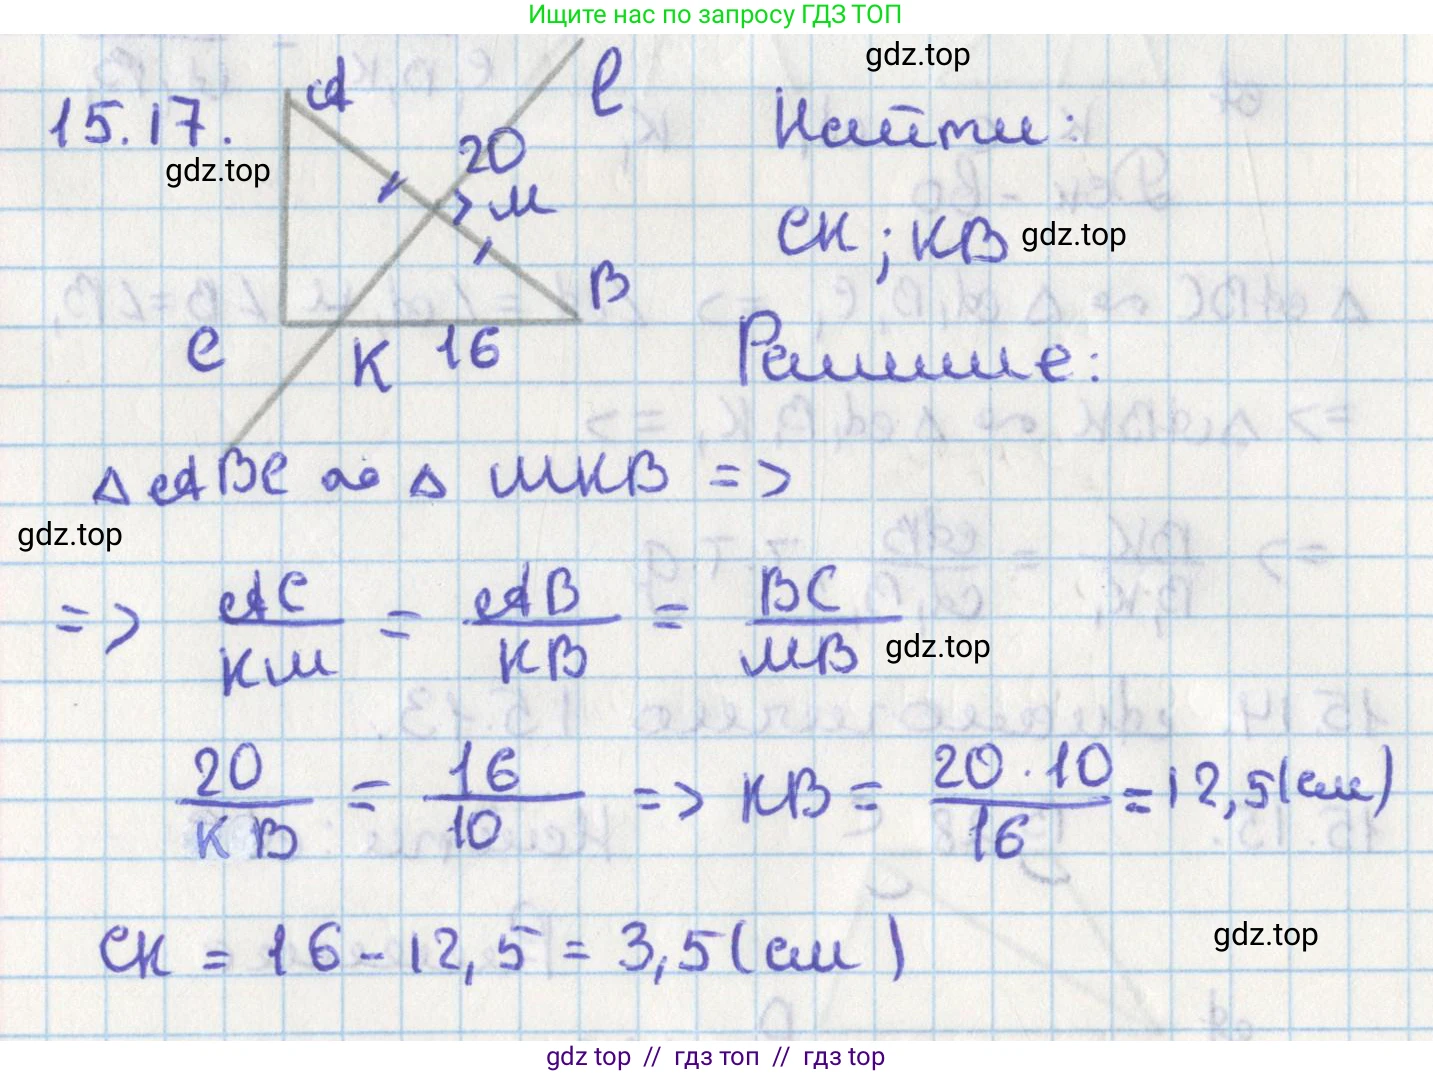 Ищите нас по запросу ГДЗ ТОП
gdz.top
15.17.
A
ℓ
Найти:
gdz.top
20
M
CK ; KB
gdz.top
B
C
K
16
Решение:
△ ABC ∾ △ MKB =>
gdz.top
=> AC/KM = AB/KB = BC/MB
gdz.top
20/KB = 16/10 => KB = 20·10/16 = 12,5(см)
CK = 16-12,5 = 3,5(см)
gdz.top
gdz top // гдз топ // гдз top